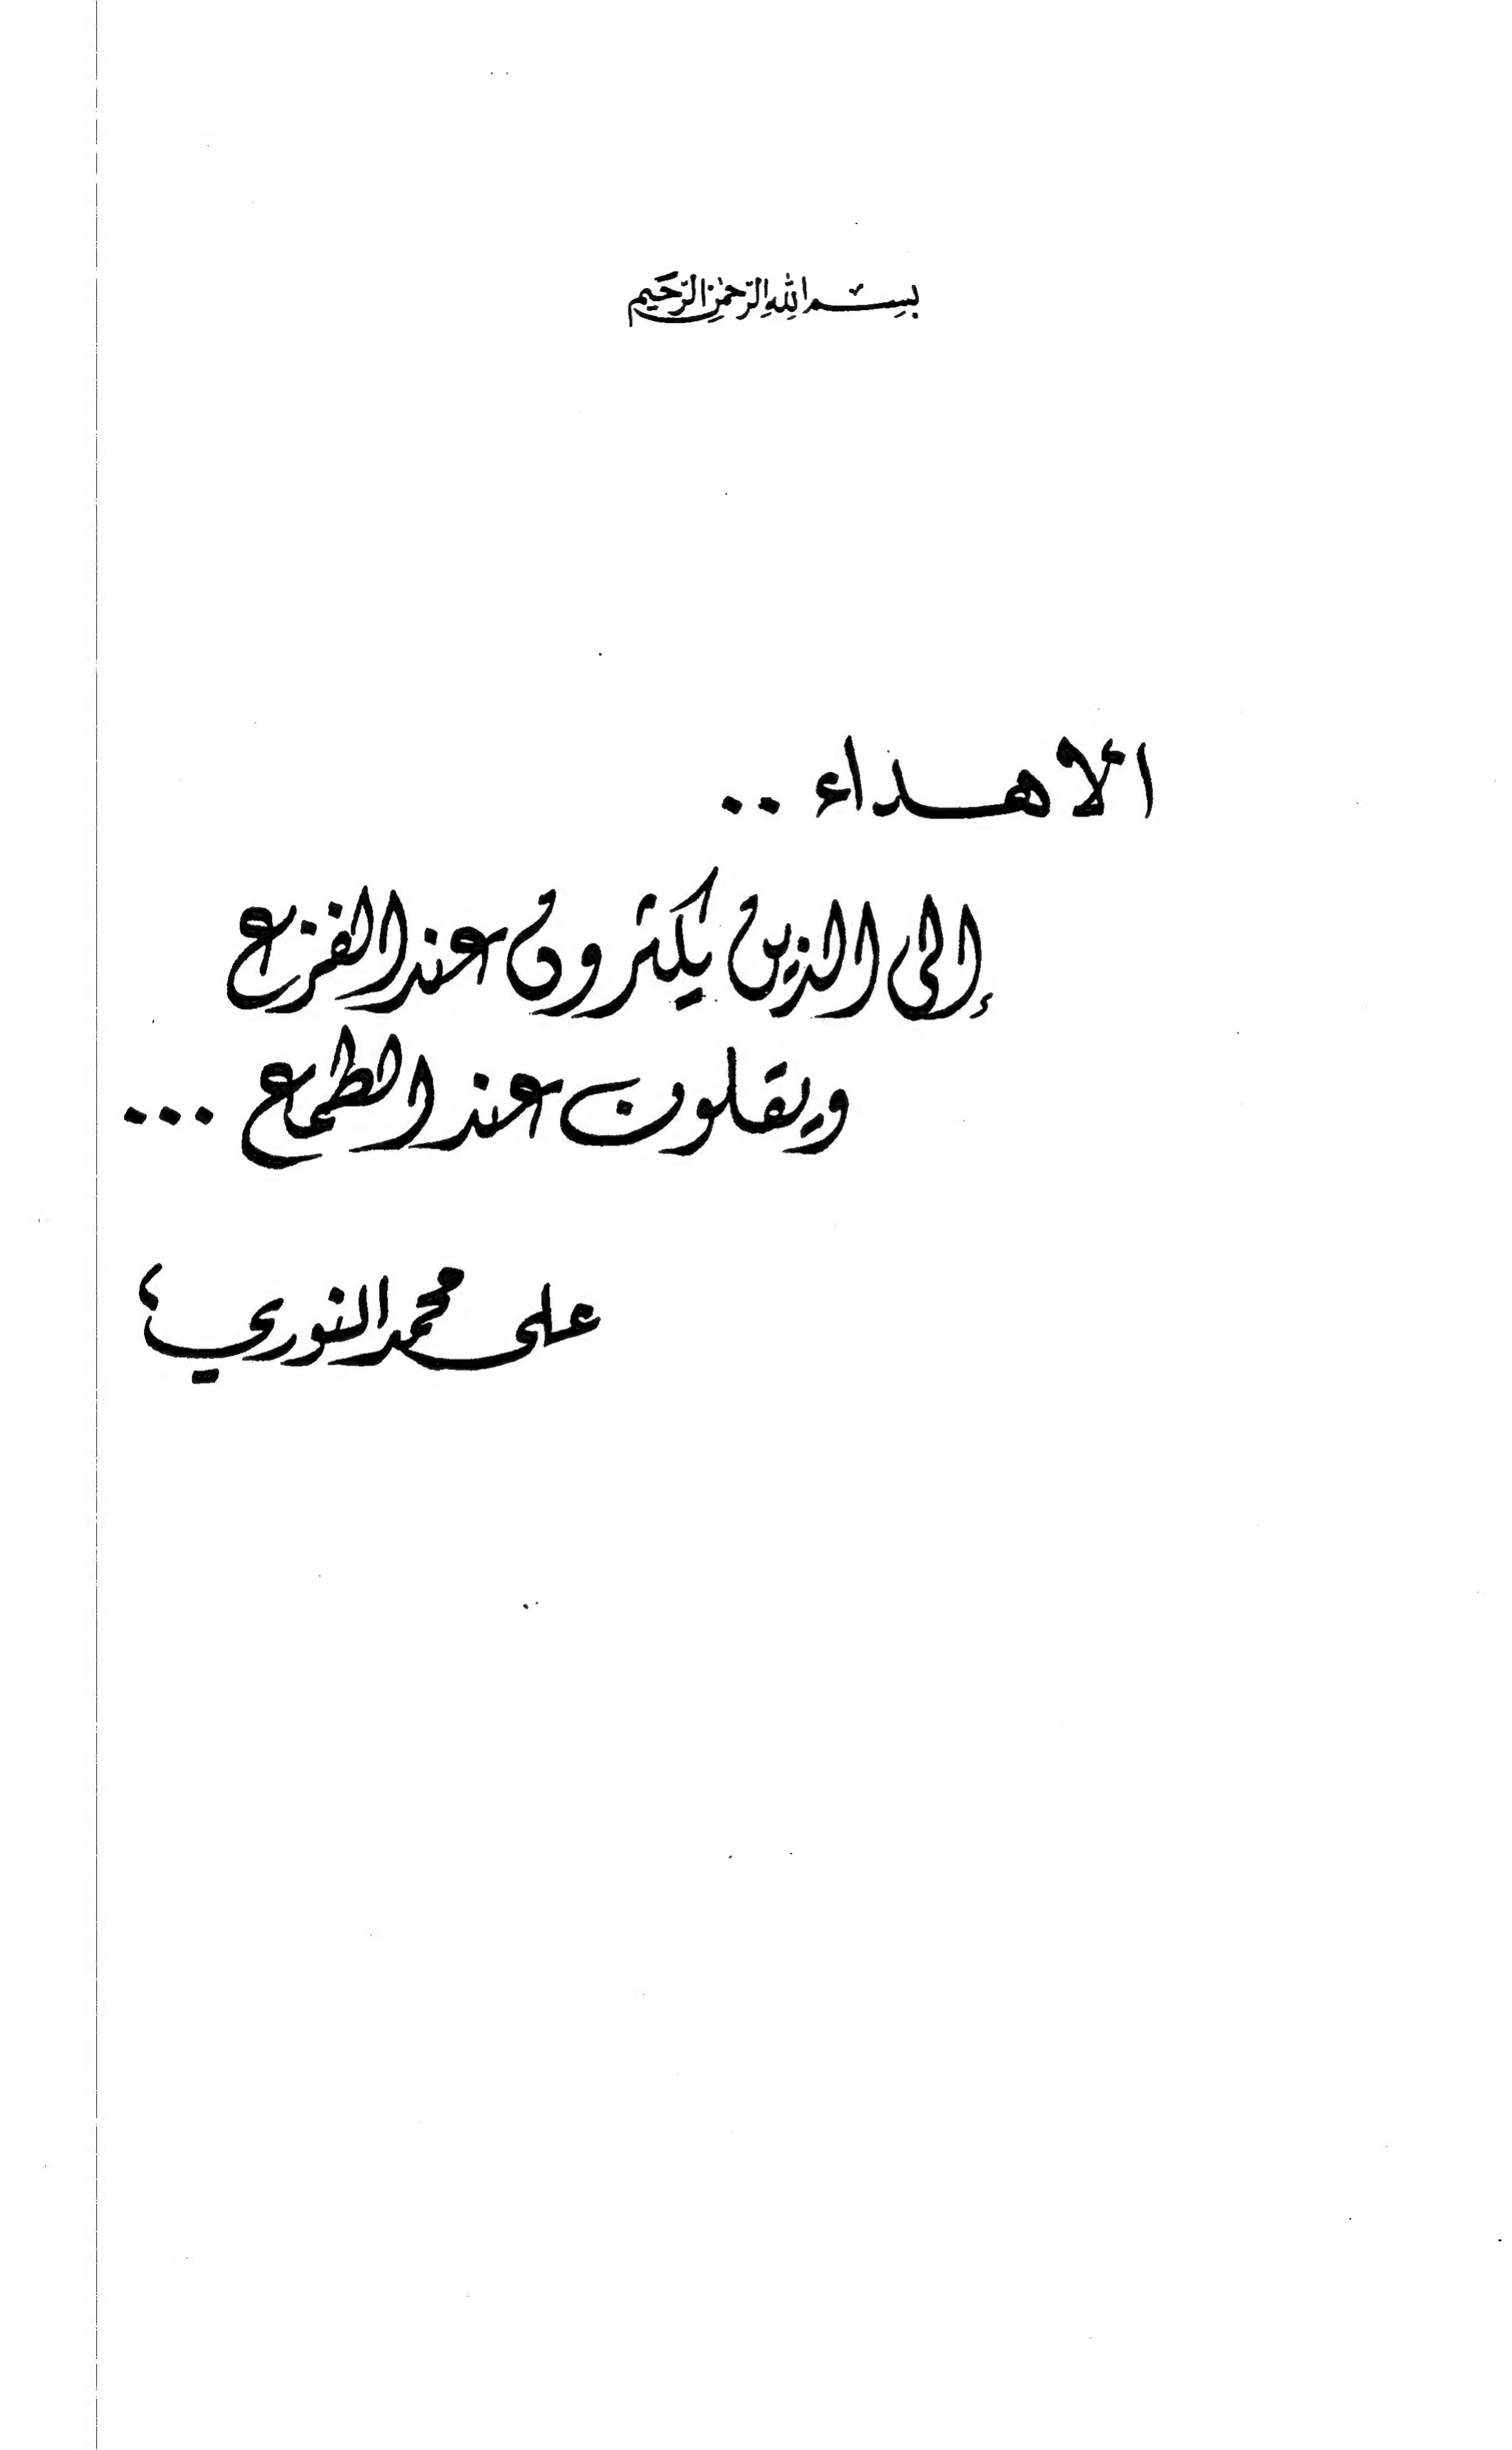 بِسْمِ اللهِ الرَّحْمٰنِ الرَّحَيِم
الاهداء ..
إلى الذين يكثرون عند الفزع
ويقلون عند الطمع ...
علي محمد النوري